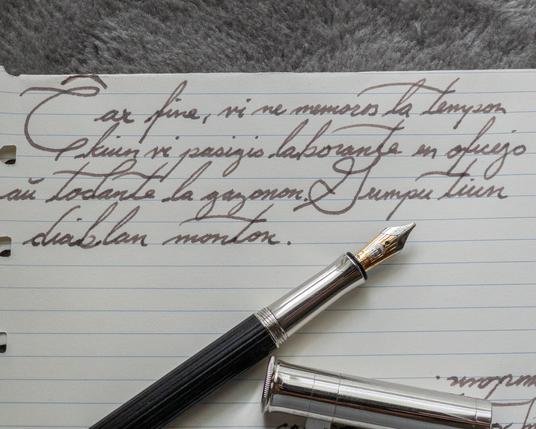 Ĉar fine, vi ne memoros la tempon
kiun vi pasigis laborante en oficejo
aŭ todante la gazonon. Grimpu tiun
diablan monton.